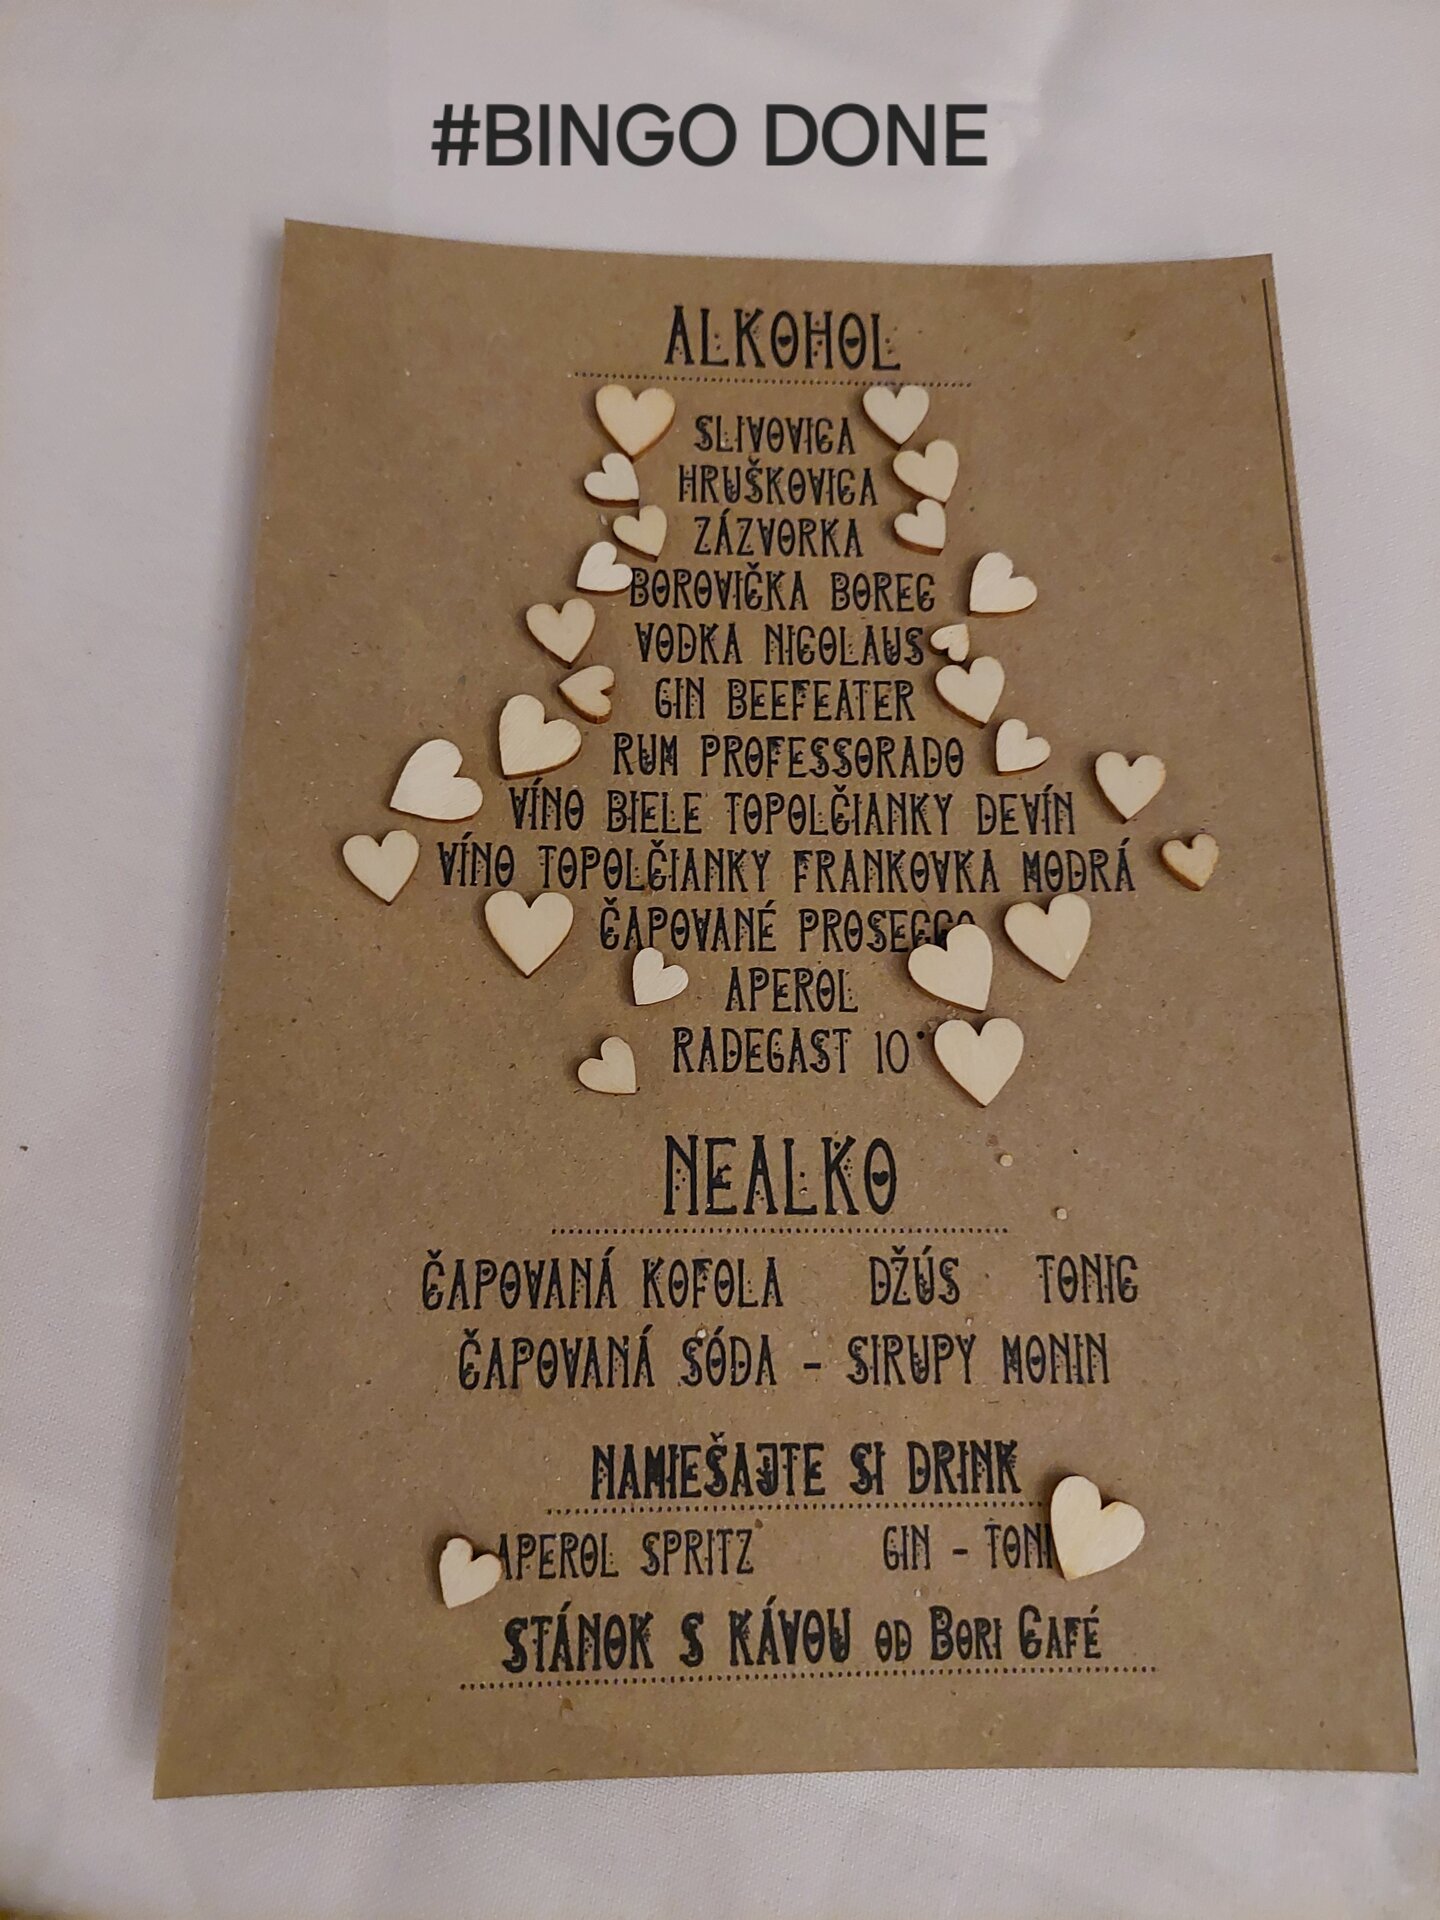 #BINGO DONE
ALKOHOL
SLIVOVICA
HRUŠKOVICA
ZÁZVORKA
BOROVIČKA BOREC
VODKA NICOLAUS
GIN BEEFEATER
RUM PROFESSORADO
VÍNO BIELE TOPOLČIANKY DEVÍN
VÍNO TOPOLČIANKY FRANKOVKA MODRÁ
ČAPOVANÉ PROSECCO
APEROL
RADEGAST 10°
NEALKO
ČAPOVANÁ KOFOLA DŽÚS TONIC
ČAPOVANÁ SÓDA - SIRUPY MONIN
NAMIEŠAJTE SI DRINK
APEROL SPRITZ GIN - TONI
STÁNOK S KÁVOU OD BORI CAFÉ